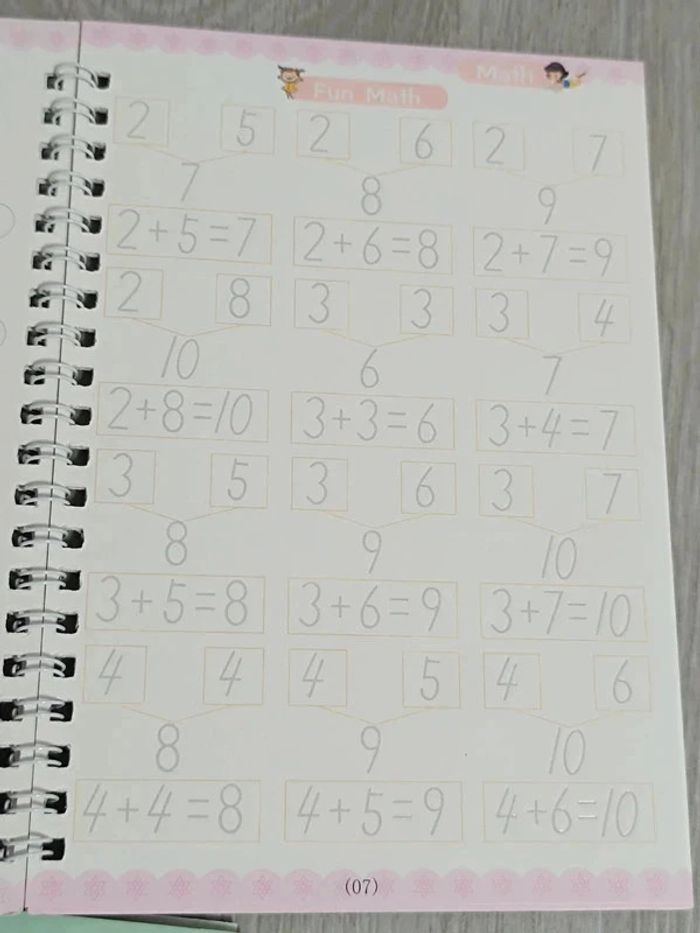 Math
Fun Math
2 5 2 6 2 7
7 8 9
2+5=7 2+6=8 2+7=9
2 8 3 3 3 4
10 6 7
2+8=10 3+3=6 3+4=7
3 5 3 6 3 7
8 9 10
3+5=8 3+6=9 3+7=10
4 4 4 5 4 6
8 9 10
4+4=8 4+5=9 4+6=10
(07)